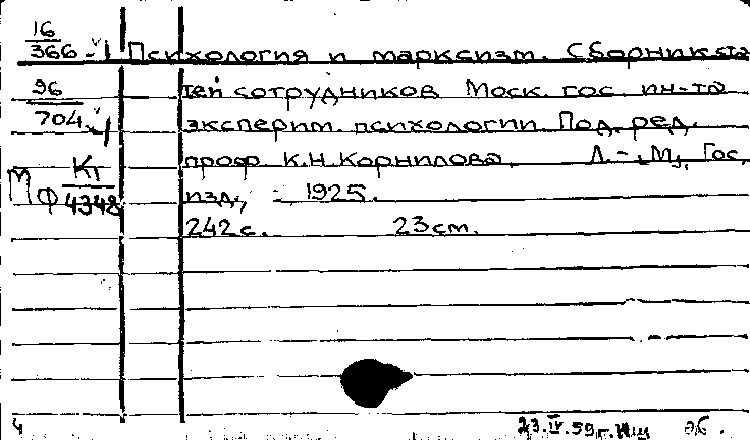 16
366 Психология и марксизм. Сборник ста
96 тей сотрудников Моск. гос. ин-та
704 эксперим. психологии. Под. ред.
Кт проф К.Н.Корнилова. Л.-М., Гос.
МФ 4348 изд., 1925.
242с. 23см.
4 23.IV.59г.